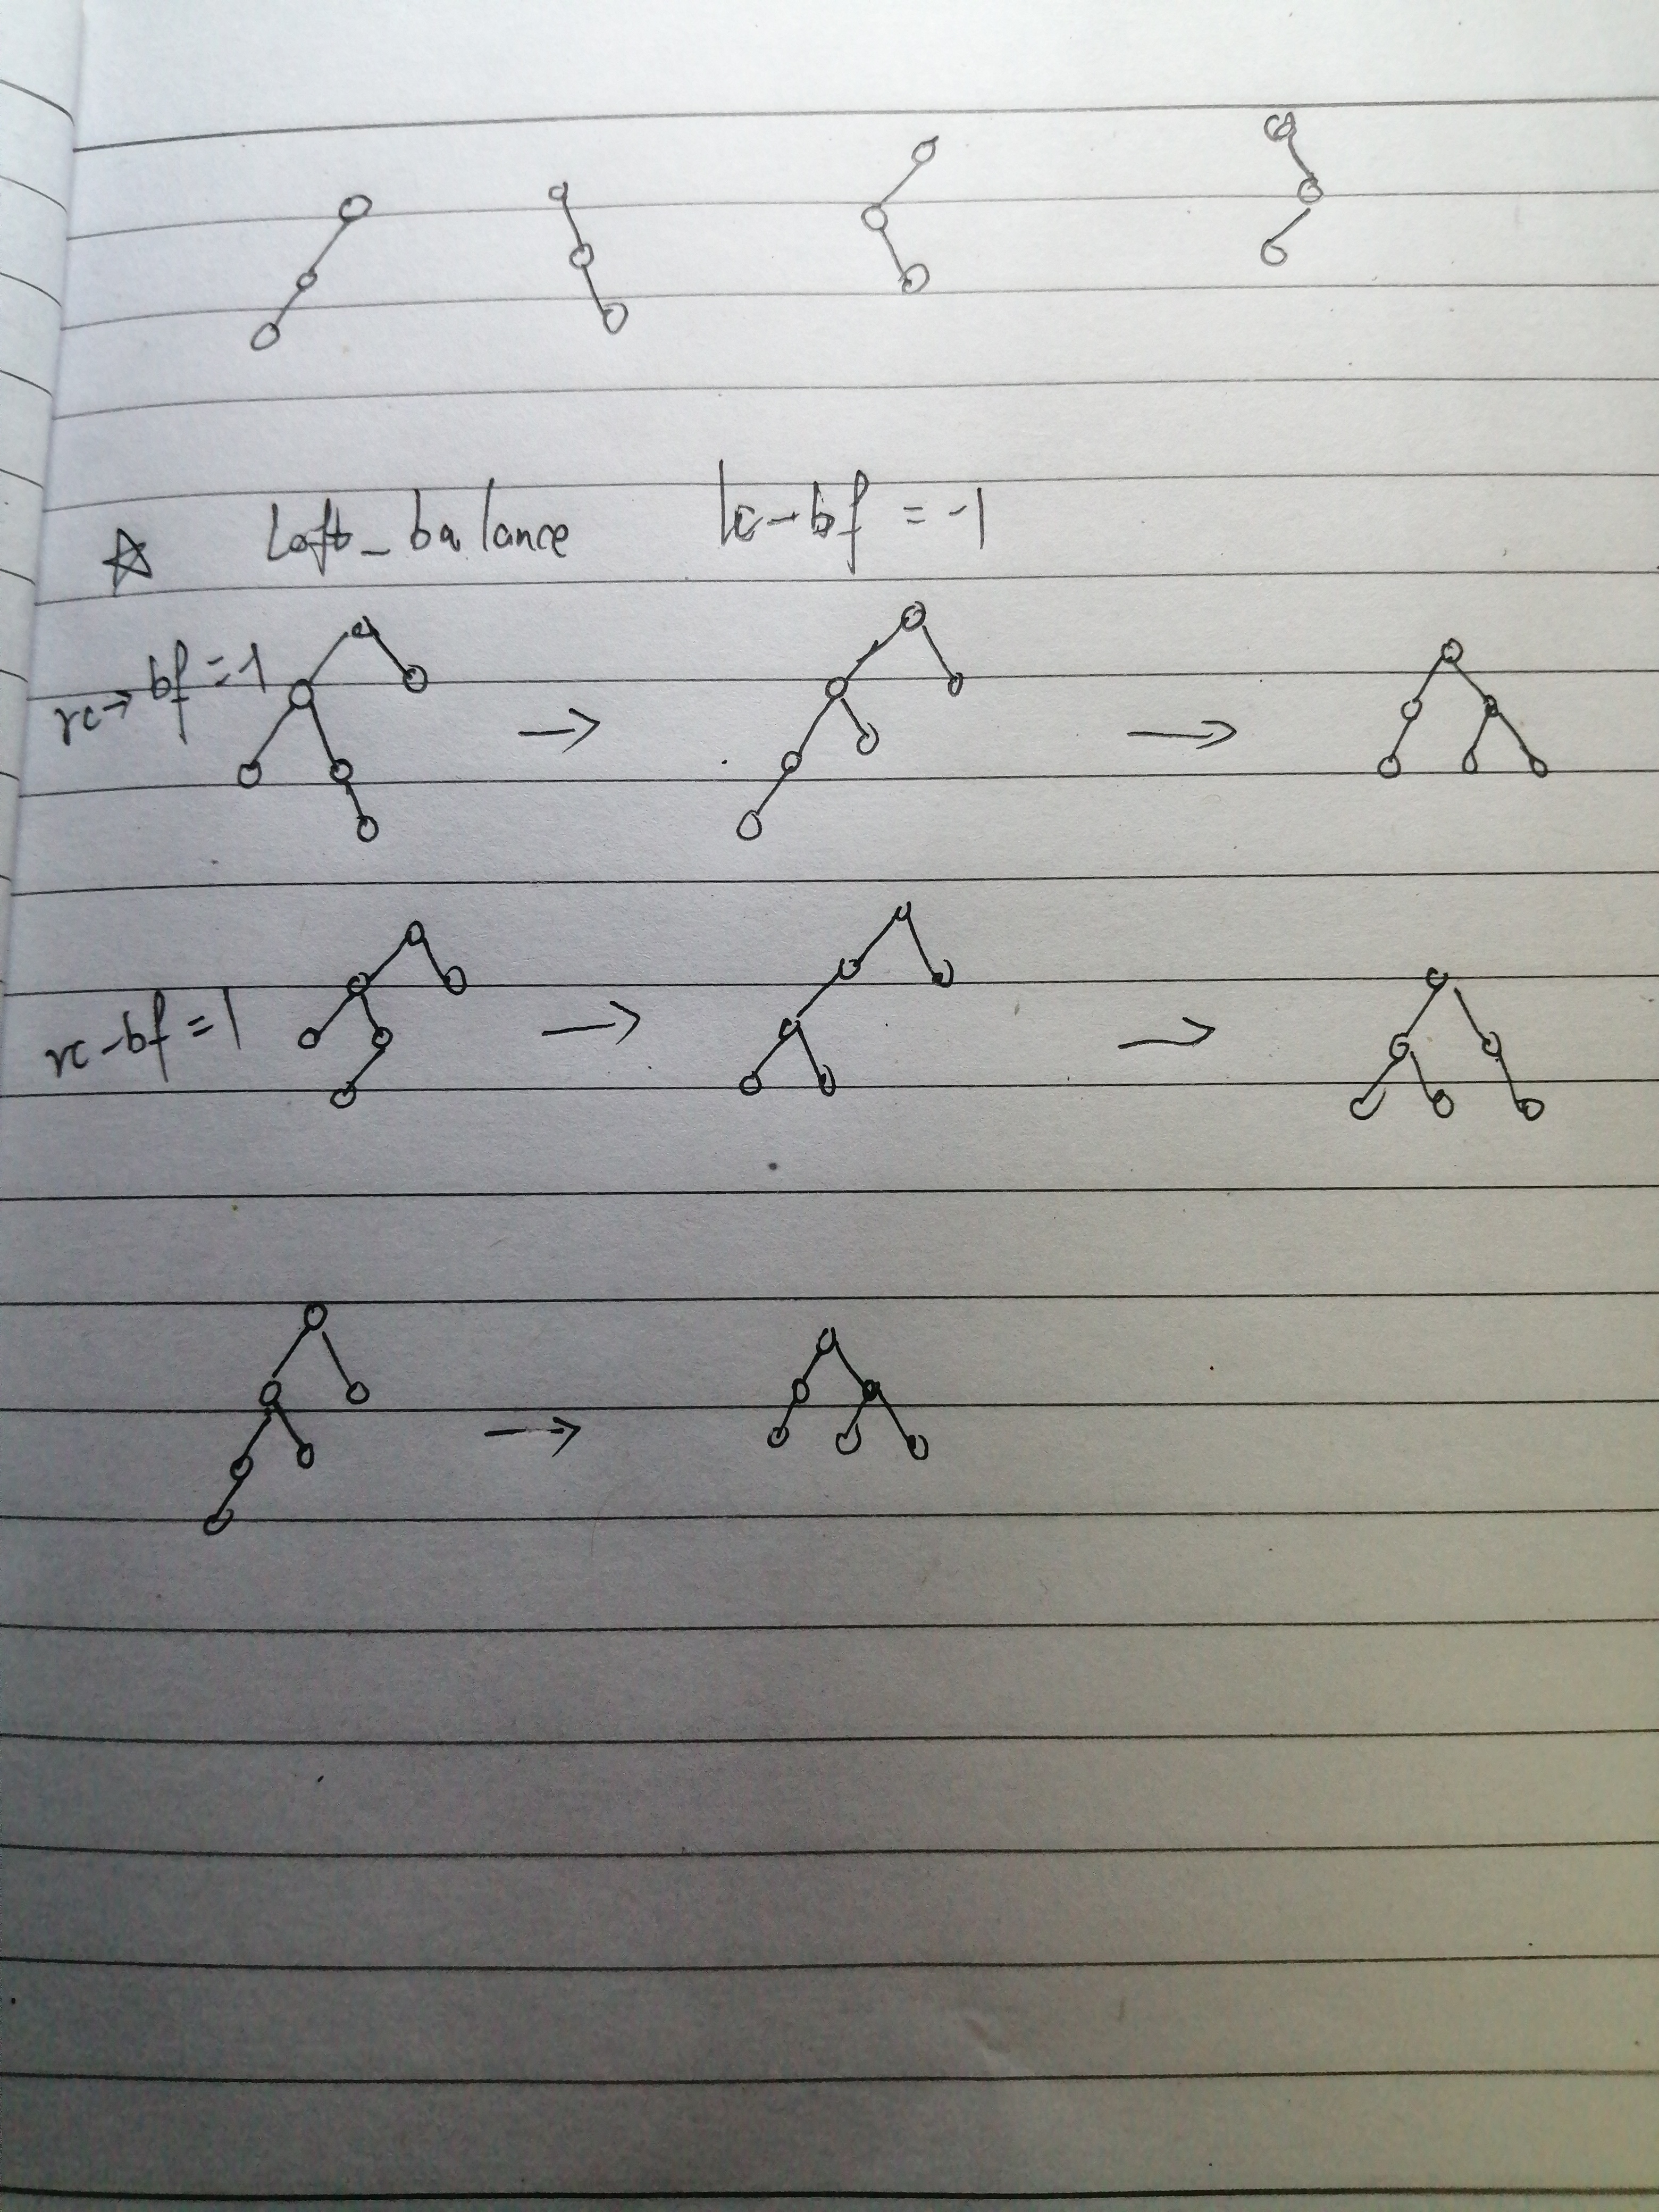 Left_balance lc-bf = -1
rc→bf = -1
rc-bf = 1